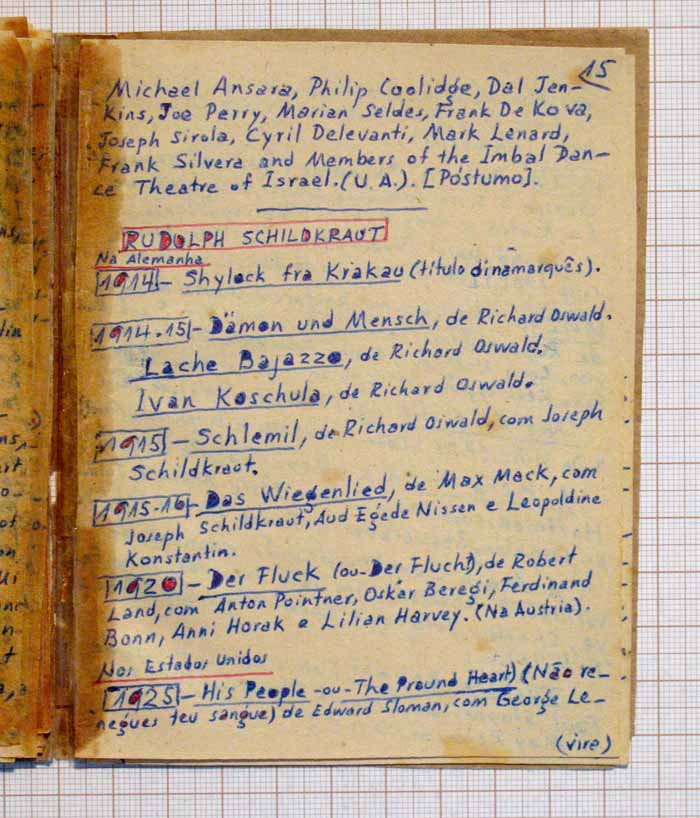 15
Michael Ansara, Philip Coolidge, Dal Jen-
Kins, Joe Perry, Marian Seldes, Frank De Kova,
Joseph Sirola, Cyril Delevanti, Mark Lenard,
Frank Silvera and Members of the Imbal Dan-
ce Theatre of Israel. (U.A.). [Póstumo].
RUDOLPH SCHILDKRAUT
Na Alemanha
1914 - Shylock fra Krakau (título dinamarquês).
1914-15 - Dämon und Mensch, de Richard Oswald.
Lache Bajazzo, de Richard Oswald.
Ivan Koschula, de Richard Oswald.
1915 - Schlemil, de Richard Oswald, com Joseph
Schildkraut.
1915-16 - Das Wiegenlied, de Max Mack, com
Joseph Schildkraut, Aud Egede Nissen e Leopoldine
Konstantin.
1920 - Der Fluck (ou-Der Fluch!), de Robert
Land, com Anton Pointner, Oskar Beregi, Ferdinand
Bonn, Anni Horak e Lilian Harvey. (Na Austria).
Nos Estados Unidos
1925 - His People -ou- The Pround Heart) (Não re-
negues teu sangue) de Edward Sloman, com George Le-
(vire)